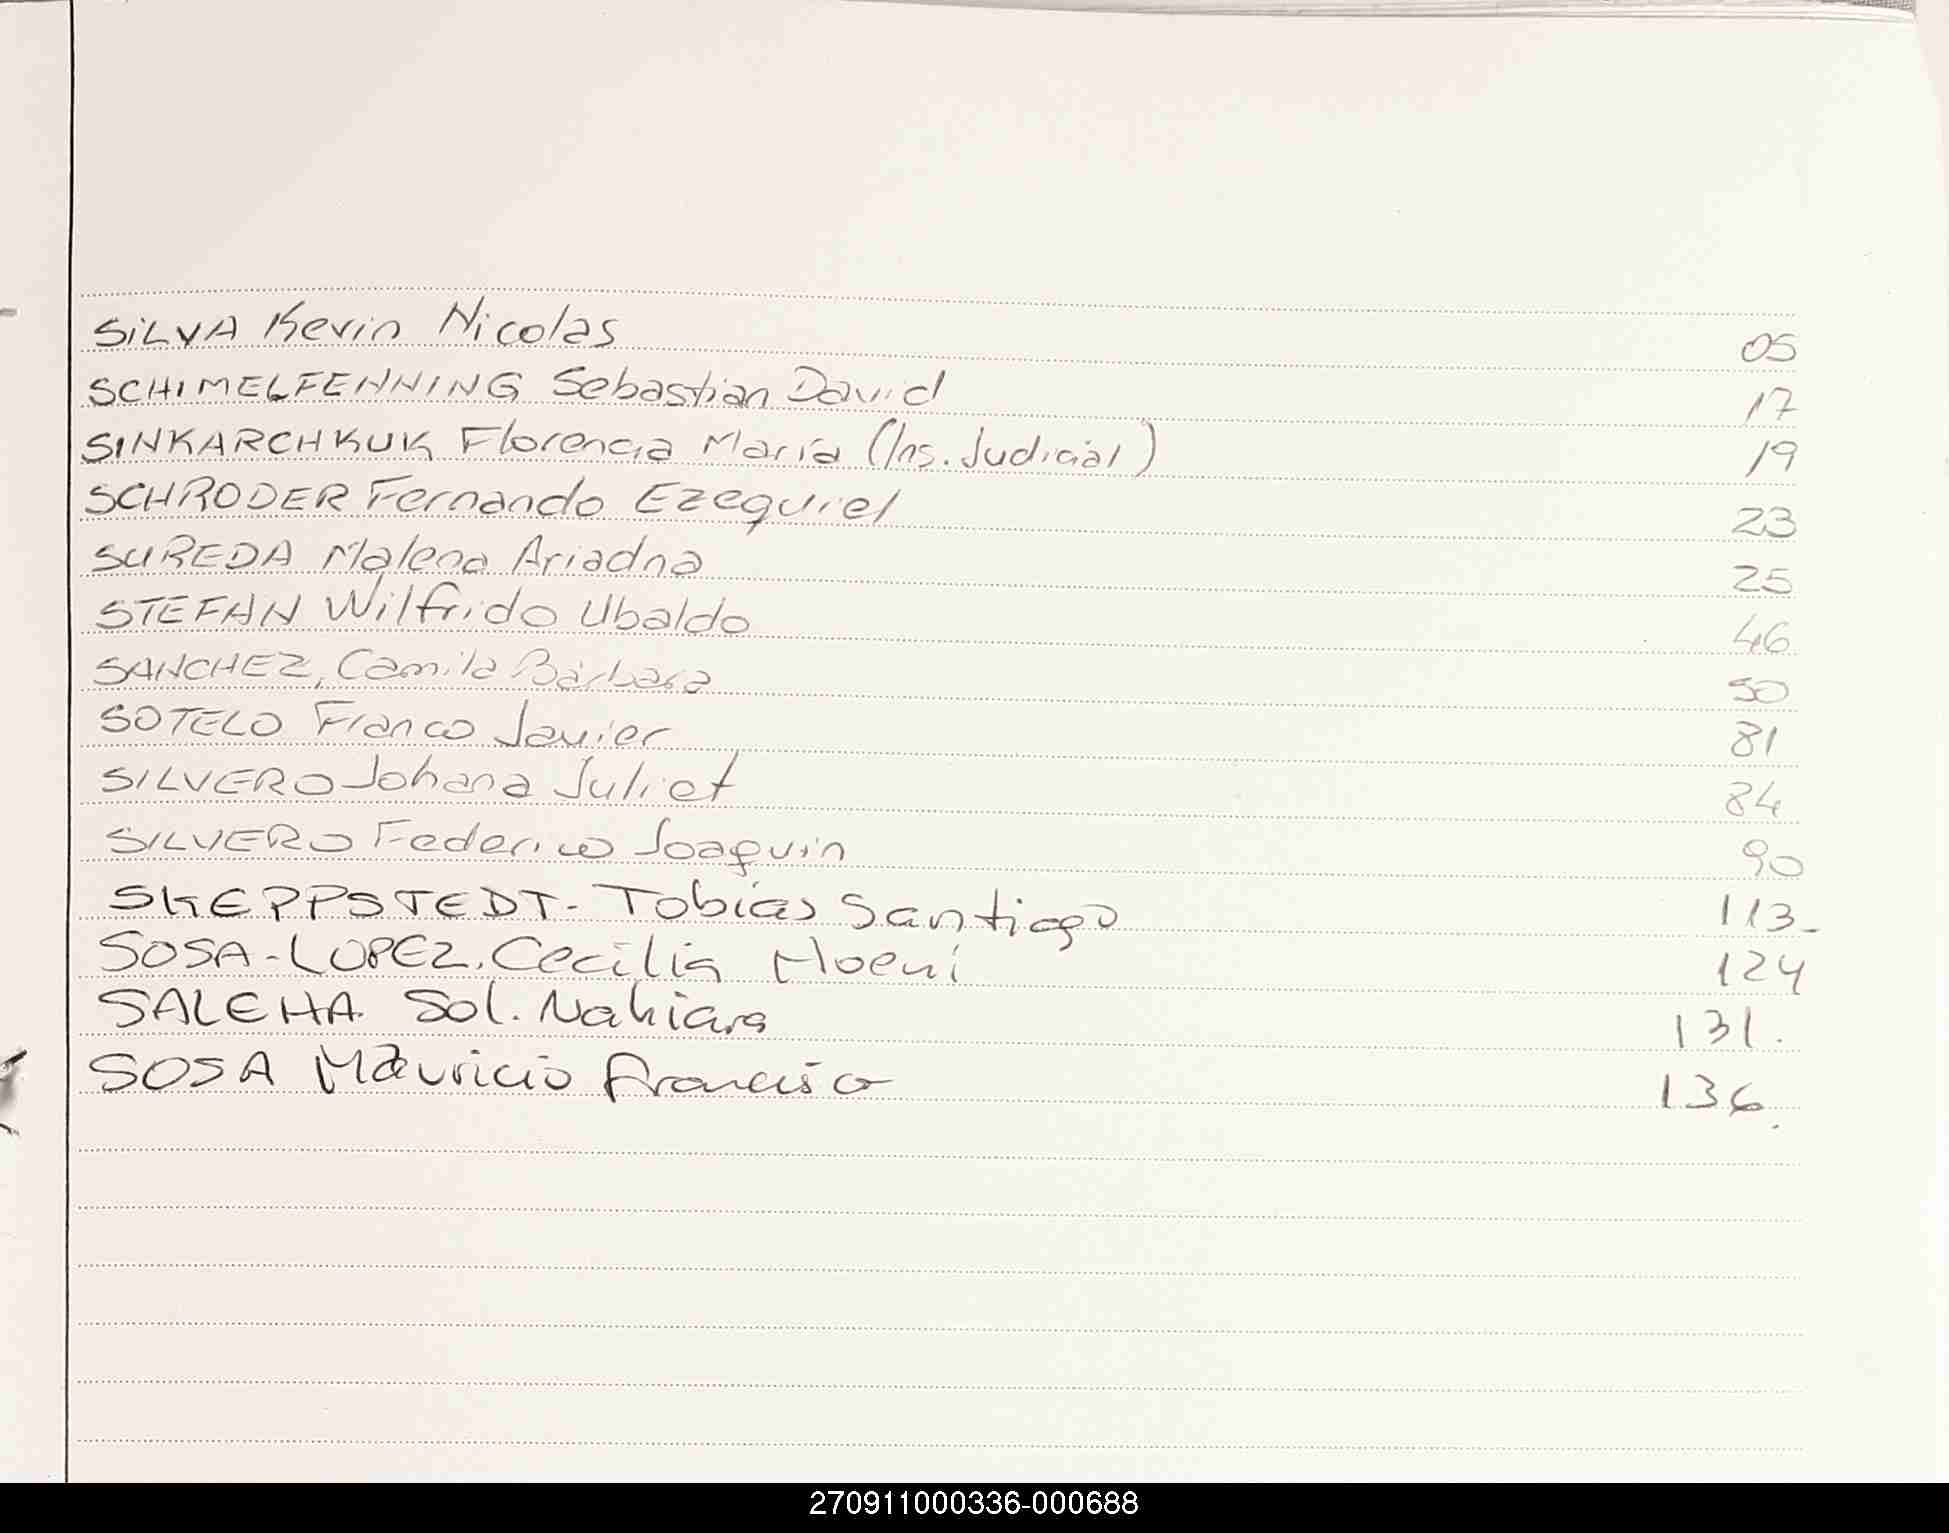 SILVA Kevin Nicolas 05
SCHIMELFENNING Sebastian David 17
SINKARCHKUK Florencia María (Ins. Judicial) 19
SCHRODER Fernando Ezequiel 23
SUREDA Malena Ariadna 25
STEFAN Wilfrido Ubaldo 46
SANCHEZ, Camila Bárbara 50
SOTELO Franco Javier 81
SILVERO Johana Juliet 84
SILVERO Federico Joaquin 90
SKEPPSTEDT- Tobías Santiago 113-
SOSA-LOPEZ. Cecilia Noemí 124
SALEHA Sol. Nahiara 131.
SOSA Mauricio Francisco 136.
270911000336-000688